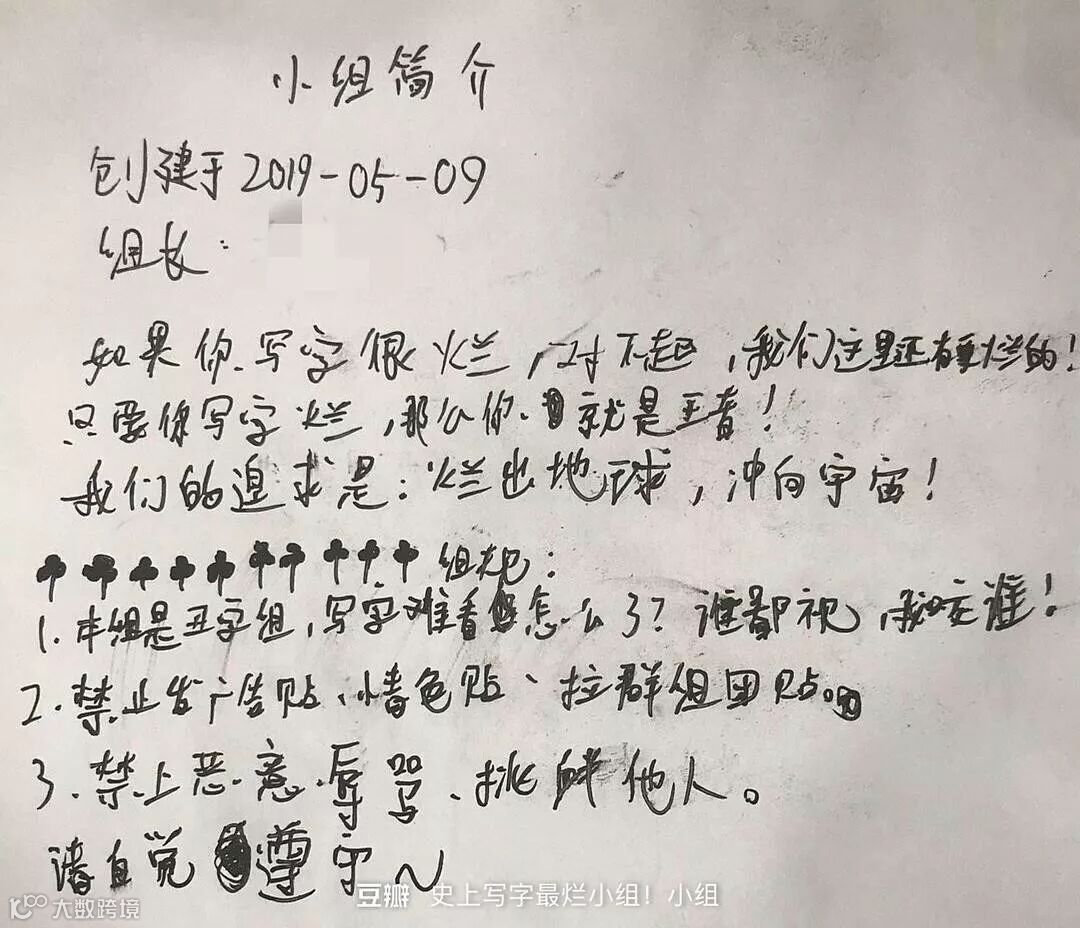 小组简介
创建于2019-05-09
组长:
如果你写字很烂,对不起,我们这里还有更烂的!
只要你写字烂,那么你就是王者!
我们的追求是:烂出地球,冲向宇宙!
♣♣♣♣♣♣♣♣♣♣组规:
1.本组是丑字组,写字难看怎么了?谁鄙视,我咬谁!
2.禁止发广告贴、情色贴、拉群组团贴。
3.禁止恶意辱骂、挑衅他人。
请自觉遵守~
豆瓣 史上写字最烂小组!小组
大数跨境